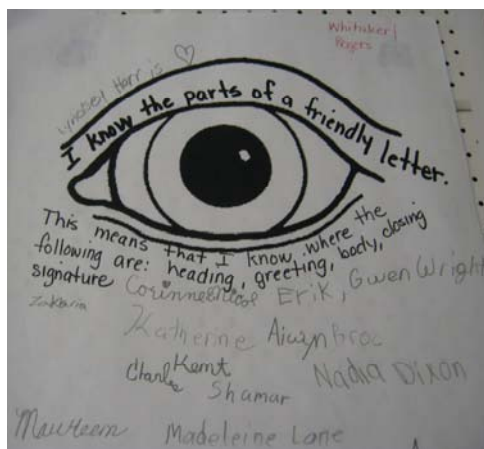 Whitaker/
Rogers
Lyndsey Harris
I know the parts of a friendly letter.
This means that I know where the
following are: heading, greeting, body, closing
signature
Erik, Gwen Wright
Zakaria
Katherine
Nadia Dixon
Charles Kent
Shamar
Maureen Madeleine Lane